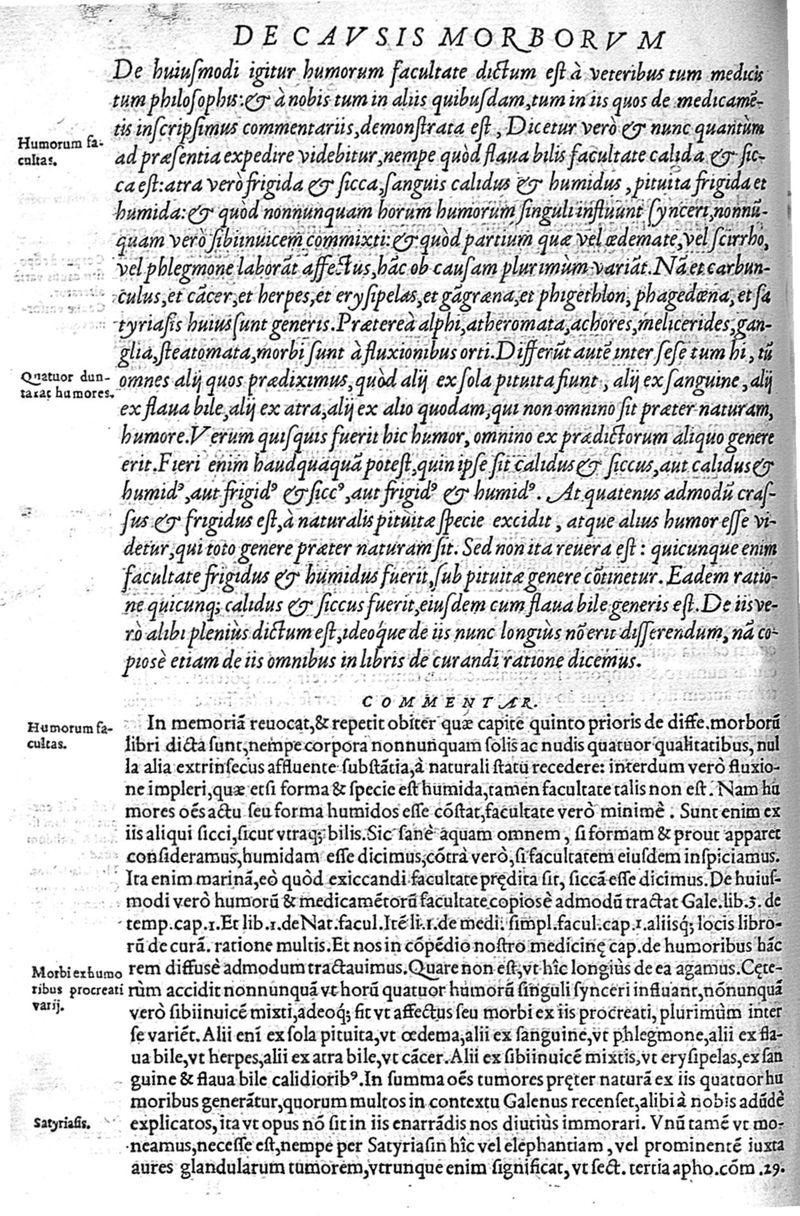 DE CAVSIS MORBORVM
De huiuſmodi igitur humorum facultate dictum eſt à veteribus tum medicis
tum philoſophis: & à nobis tum in aliis quibuſdam, tum in iis quos de medicamē-
tis inſcripſimus commentariis, demonſtrata eſt, Dicetur verò & nunc quantùm
Humorum fa-
cultas.
ad præſentia expedire videbitur, nempe quòd flaua bilis facultate calida & ſic-
ca eſt: atra verò frigida & ſicca, ſanguis calidus & humidus, pituita frigida et
humida: & quòd nonnunquam horum humorum ſinguli influunt ſynceri, nonnū-
quam verò ſibiinuicem commixti: & quòd partium quæ vel œdemate, vel ſcirrho,
vel phlegmone laborāt affectus, hāc ob cauſam plurimùm variāt. Nā et carbun-
culus, et cācer, et herpes, et eryſipelas, et gāgræna, et phigethlon, phagedœna, et ſa
tyriaſis huius ſunt generis. Prætereà alphi, atheromata, achores, melicerides, gan-
glia, ſteatomata, morbi ſunt à fluxionibus orti. Differūt autē inter ſeſe tum hi, tū
Quatuor dun-
taxat humores.
omnes alij quos prædiximus, quòd alij ex ſola pituita fiunt, alij ex ſanguine, alij
ex flaua bile, alij ex atra, alij ex alio quodam, qui non omnino ſit præter naturam,
humore. Verum quiſquis fuerit hic humor, omnino ex prædictorum aliquo genere
erit. Fieri enim haudquaquā poteſt, quin ipſe ſit calidus & ſiccus, aut calidus &
humidꝰ, aut frigidꝰ & ſiccꝰ, aut frigidꝰ & humidꝰ. At quatenus admodū craſ-
ſus & frigidus eſt, à naturalis pituitæ ſpecie excidit, atque alius humor eſſe vi-
detur, qui toto genere præter naturam ſit. Sed non ita reuera eſt: quicunque enim
facultate frigidus & humidus fuerit, ſub pituitæ genere cōtinetur. Eadem ratio-
ne quicunq; calidus & ſiccus fuerit, eiuſdem cum flaua bile generis eſt. De iis ve-
rò alibi pleniùs dictum eſt, ideoque de iis nunc longiùs nō erit diſſerendum, nā co-
piosè etiam de iis omnibus in libris de curandi ratione dicemus.
COMMENTAR.
Humorum fa-
cultas.
In memoriā reuocat, & repetit obiter quæ capite quinto prioris de diffe. morborū
libri dicta ſunt, nempe corpora nonnunquam ſolis ac nudis quatuor qualitatibus, nul
la alia extrinſecus affluente ſubſtātia, à naturali ſtatu recedere: interdum verò fluxio-
ne impleri, quæ etſi forma & ſpecie eſt humida, tamen facultate talis non eſt. Nam hu
mores oēs actu ſeu forma humidos eſſe cōſtat, facultate verò minimè. Sunt enim ex
iis aliqui ſicci, ſicut vtraq; bilis. Sic ſanè aquam omnem, ſi formam & prout apparet
conſideramus, humidam eſſe dicimus, cōtrà verò, ſi facultatem eiuſdem inſpiciamus.
Ita enim marinā, eò quòd exiccandi facultate prędita ſit, ſiccā eſſe dicimus. De huiuſ-
modi verò humorū & medicamētorū facultate copiosè admodū tractat Gale. lib. 3. de
temp. cap. 1. Et lib. 1. de Nat. facul. Itē li. 1. de medi. ſimpl. facul. cap. 1. aliiſq; locis libro-
rū de curā. ratione multis. Et nos in cōpēdio noſtro medicinę cap. de humoribus hāc
Morbi ex humo
ribus procreati
varij.
rem diffusè admodum tractauimus. Quare non eſt, vt hîc longiùs de ea agamus. Cęte-
rùm accidit nonnunquā vt horū quatuor humorū ſinguli ſynceri influant, nōnunquā
verò ſibiinuicē mixti, adeoq; fit vt affectus ſeu morbi ex iis procreati, plurimùm inter
ſe variēt. Alii enī ex ſola pituita, vt œdema, alii ex ſanguine, vt phlegmone, alii ex fla-
ua bile, vt herpes, alii ex atra bile, vt cācer. Alii ex ſibiinuicē mixtis, vt eryſipelas, ex ſan
guine & flaua bile calidioribꝰ. In summa oēs tumores pręter naturā ex iis quatuor hu
moribus generātur, quorum multos in contextu Galenus recenſet, alibi à nobis adūdè
Satyriaſis.
explicatos, ita vt opus nō ſit in iis enarrādis nos diutiùs immorari. Vnū tamē vt mo-
neamus, neceſſe eſt, nempe per Satyriaſin hîc vel elephantiam, vel prominentē iuxta
aures glandularum tumorem, vtrunque enim ſignificat, vt ſect. tertia apho. cōm. 29.